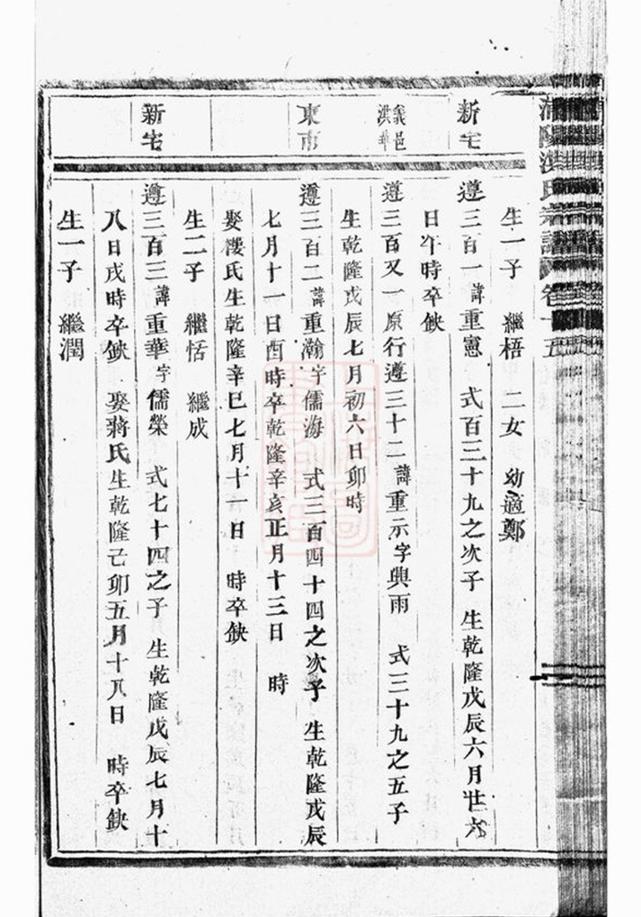 氏宗譜 卷十五
生一子 繼梧 二女 幼適鄭
新宅
遵三百一諱重憲 式百三十九之次子 生乾隆戊辰六月廿六
日午時卒鈌
義邑
洪華
遵三百又一原行遵三十二諱重示字與雨 式三十九之五子
生乾隆戊辰七月初六日卯時
東市
遵三百二諱重瀚字儒海 式三百四十四之次子 生乾隆戊辰
七月十一日酉時卒乾隆辛亥正月十三日 時
娶樓氏生乾隆辛巳七月十一日 時卒鈌
生二子 繼恬 繼成
新宅
遵三百三諱重華字儒榮 式七十四之子 生乾隆戊辰七月十
八日戌時卒鈌 娶蔣氏生乾隆己卯五月十八日 時卒鈌
生一子 繼潤